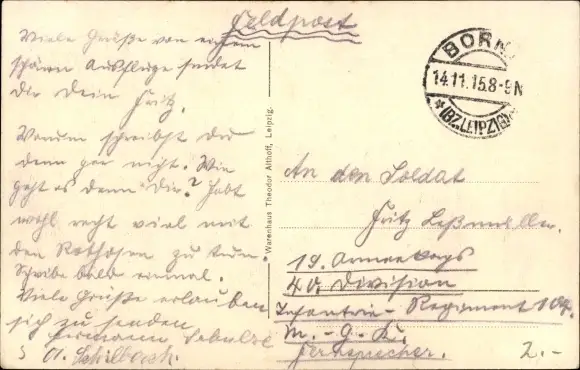 Feldpost
Viele Grüße von einem
schönen Ausfluge sendet
Dir Dein Fritz.
Warum schreibst du
denn gar nicht. Wie
geht es denn Dir? Habt
wohl recht viel mit
den Rothosen zu tun.
Schreibe bald einmal.
Viele Grüße erlauben
sich zu senden
Hermann
Warenhaus Theodor Althoff, Leipzig.
BORNA
14.11.15.8-9N
*(BZ. LEIPZIG)
An den Soldat
Fritz
19. Armeekorps
40. Division
Infanterie-Regiment 104.
M.-G.-K.
Fernsprecher.
2.-